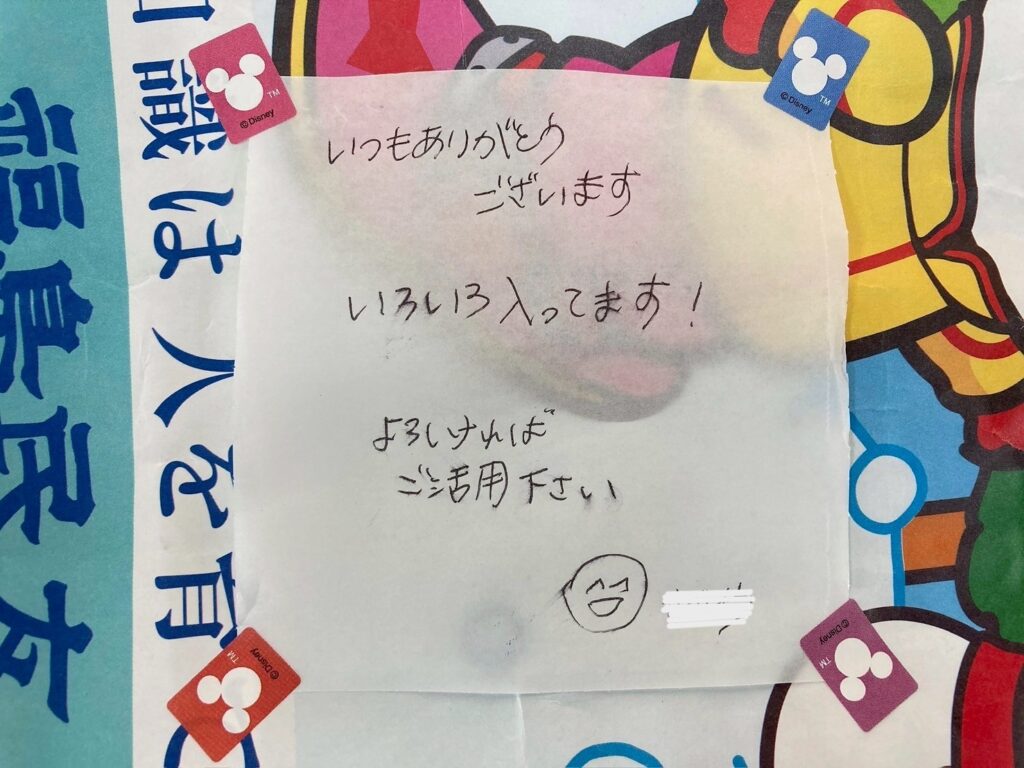 いつもありがとう
ございます
いろいろ入ってます!
よろしければ
ご活用下さい
福島民友
識は人を育
TM
©Disney
©Disney
TM
TM
©Disney
©Disney
TM